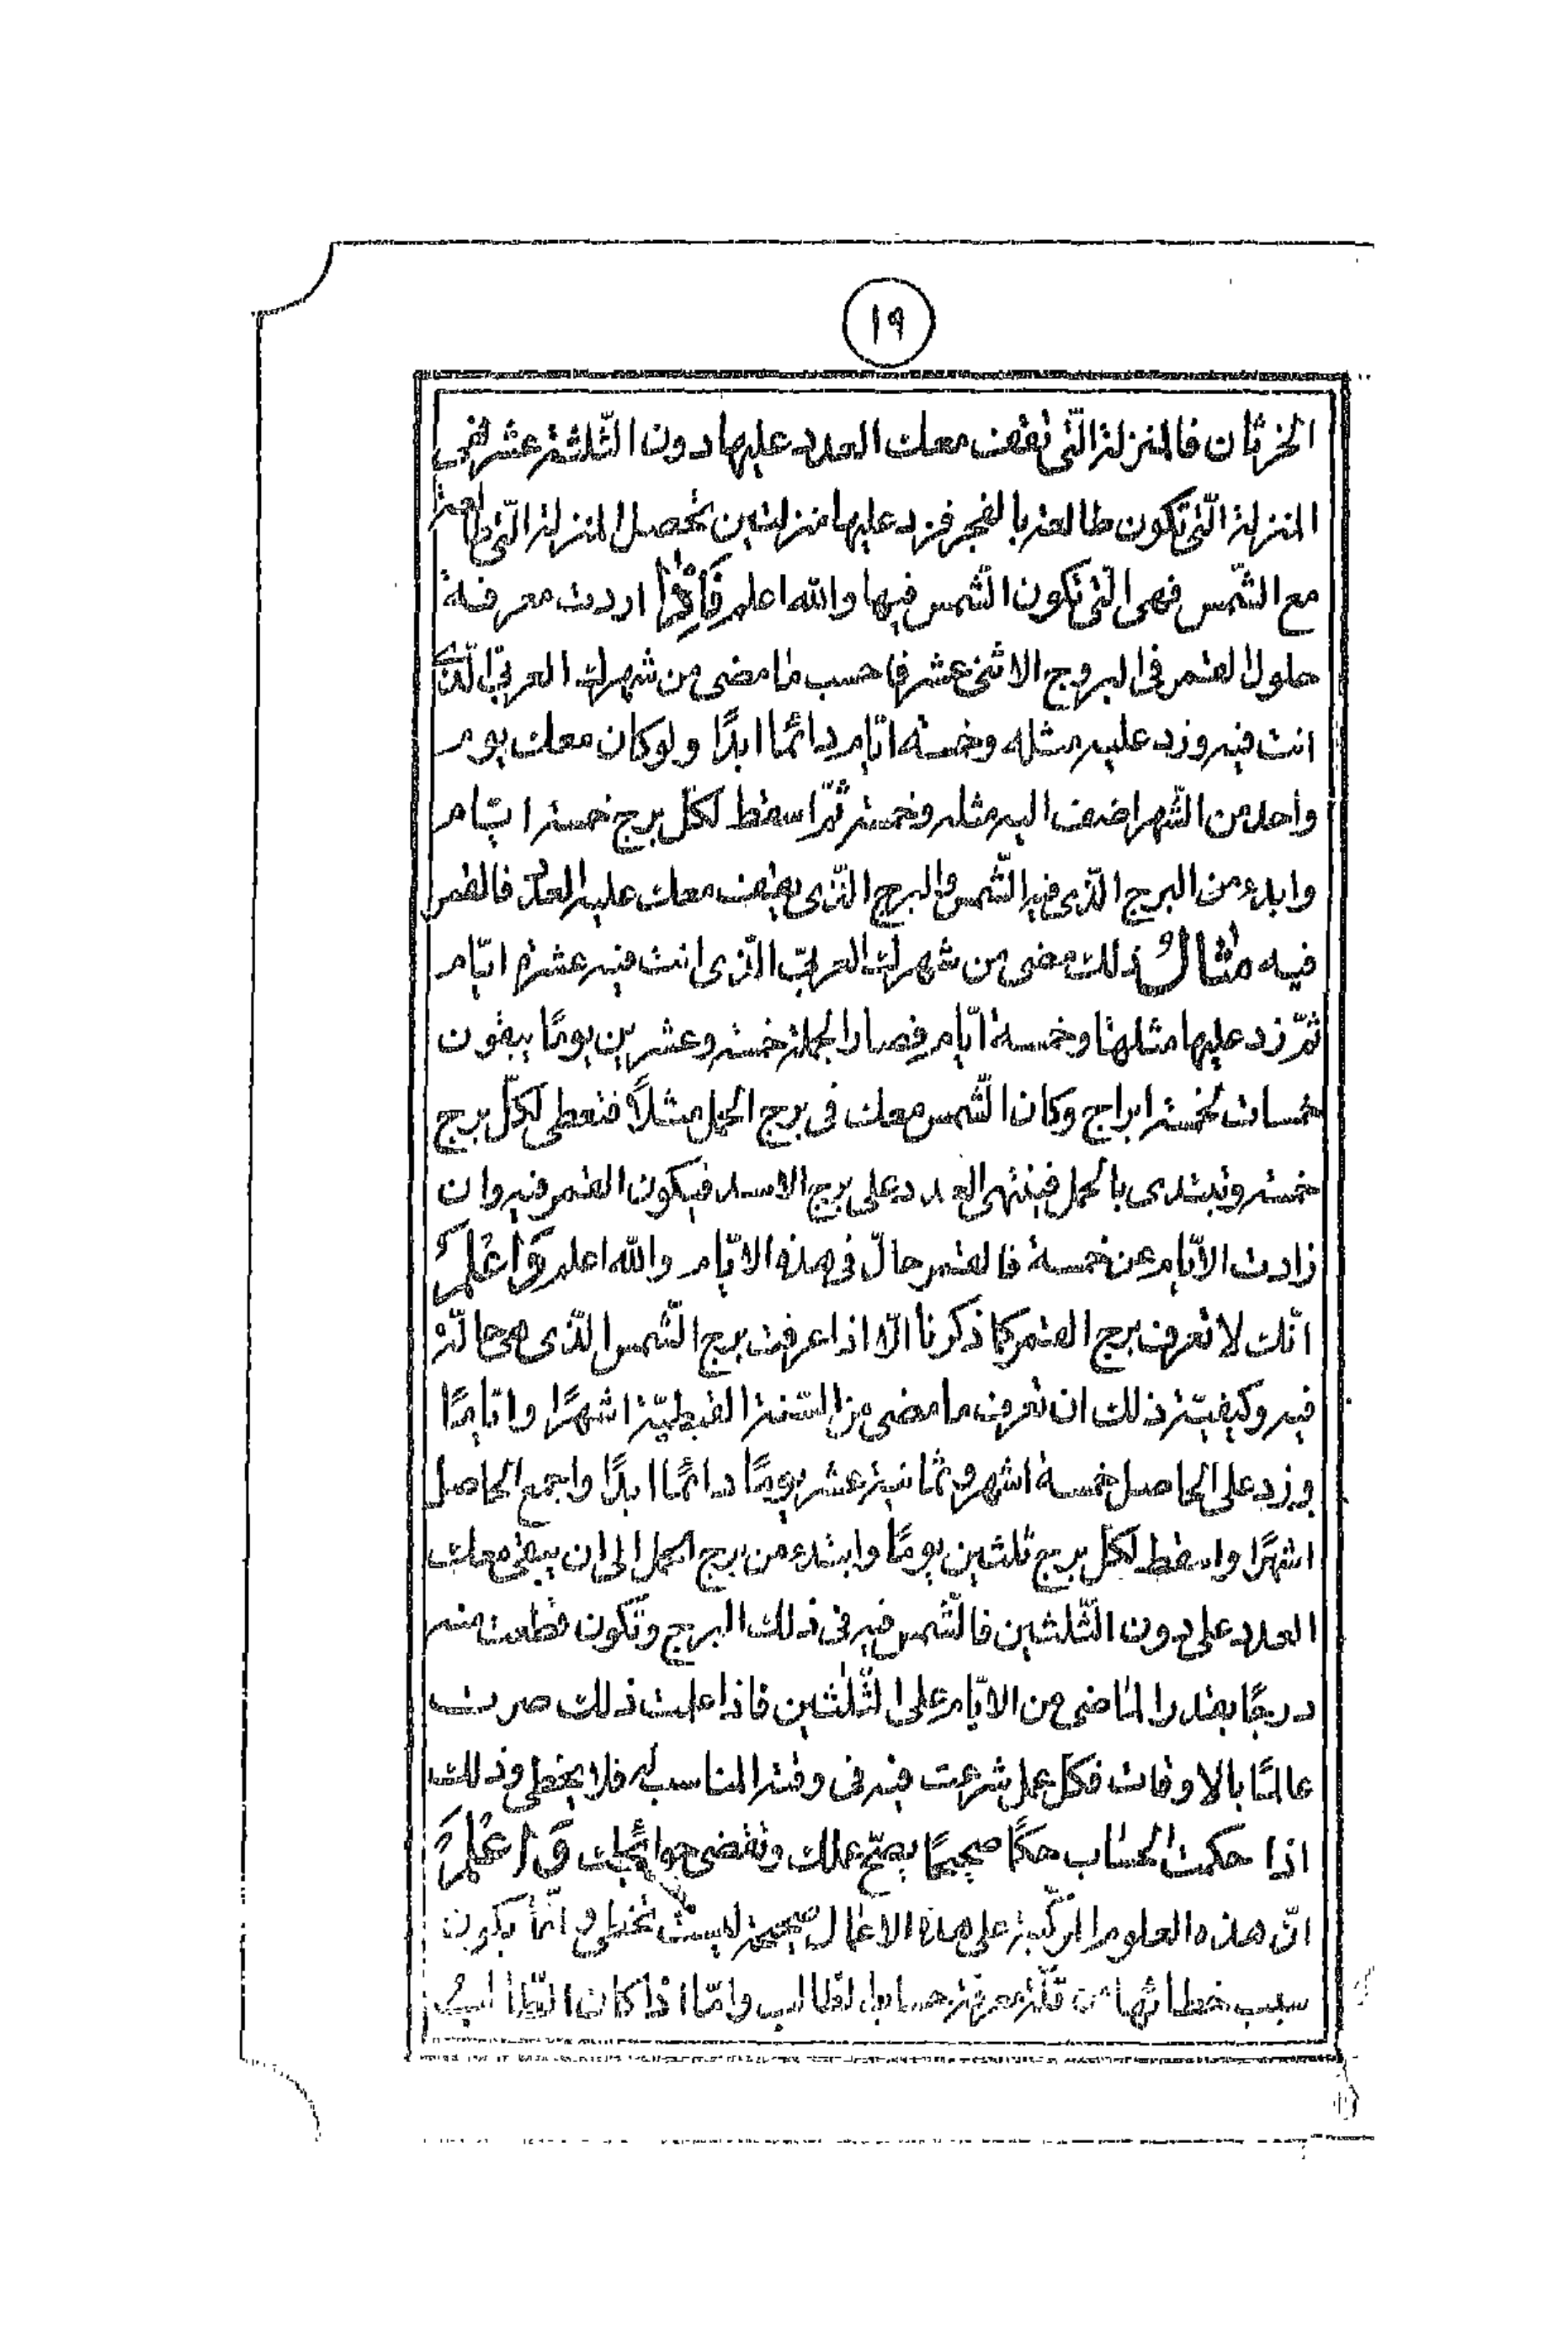 ١٩
الخرثان فالمنزلة الّتى تقف معك العدد عليها دون الثّلثة عشر فهى
المنزلة الّتى تكون طالعة بالفجر فزد عليها منزلتين تحصل المنزلة الّتى طالعة
مع الشّمس فهى الّتى تكون الشّمس فيها والله اعلم فَاِذٰا اردت معرفة
حلول القمر فى البروج الاثنى عشر فاحسب مٰا مضى من شهرك العربىّ الّذى
انت فيه وزد عليه مثله وخمسة ايّام دائمًا ابدًا ولو كان معك يوم
واحد من الشّهر اضف اليه مثله وخمسة ثمّ اسقط لكلّ برج خمسة ايّام
وابدء من البرج الّذى فيه الشّمس والبرج الّذى يقف معك عليه العدد فالقمر
فيه مثٰالُ ذلك مضى من شهرك العربىّ الّذى انت فيه عشرة ايّام
ثمّ زد عليها مثلهٰا وخمسة ايّام فصار الجملة خمسة وعشرين يومًا يبقون
خمسات لخمسة ابراج وكان الشّمس معك فى برج الحمل مثلاً فتعطى لكلّ برج
خمسة وتبتدى بالحمل فينتهى العدد على برج الاسد فيكون القمر فيه وان
زادت الايّام عن خمسة فالقمر حالّ فى هذه الايّام والله اعلم وَاعْلَمْ
انّك لا تعرف برج القمر كما ذكرنا الّا اذا عرفت برج الشّمس الّذى هى حالّة
فيه وكيفيّة ذلك ان تعرف ما مضى من السّنة القبطيّة اشهرًا وايّامًا
وزد على الحاصل خمسة اشهر وثمانية عشر يومًا دائمًا ابدًا واجمع الحاصل
اشهرًا واسقط لكلّ برج ثلثين يومًا وابتدء من برج الحمل الى ان يبقى معك
العدد على دون الثّلثين فالشّمس فيه فى ذلك البرج وتكون قطعت منه
درجًا بقدر المٰاضى من الايّام على الثّلٰثين فاذا علمت ذلك صرت
عالمًا بالاوقات فكل عمل شرعت فيه فى وقته المناسب له فلا يخطى وذلك
اذا حكمت الحسٰاب حكمًا صحيحًا يصحّ عملك وتقضى حوائجك وَاعْلَمْ
انّ هذه العلوم المركّبة على هذه الاعمٰال صحيحة ليست تخطى وانّما يكون
سبب خطائها من قلّة معرفة حسابها لطالب وامّا اذا كان الطّالب